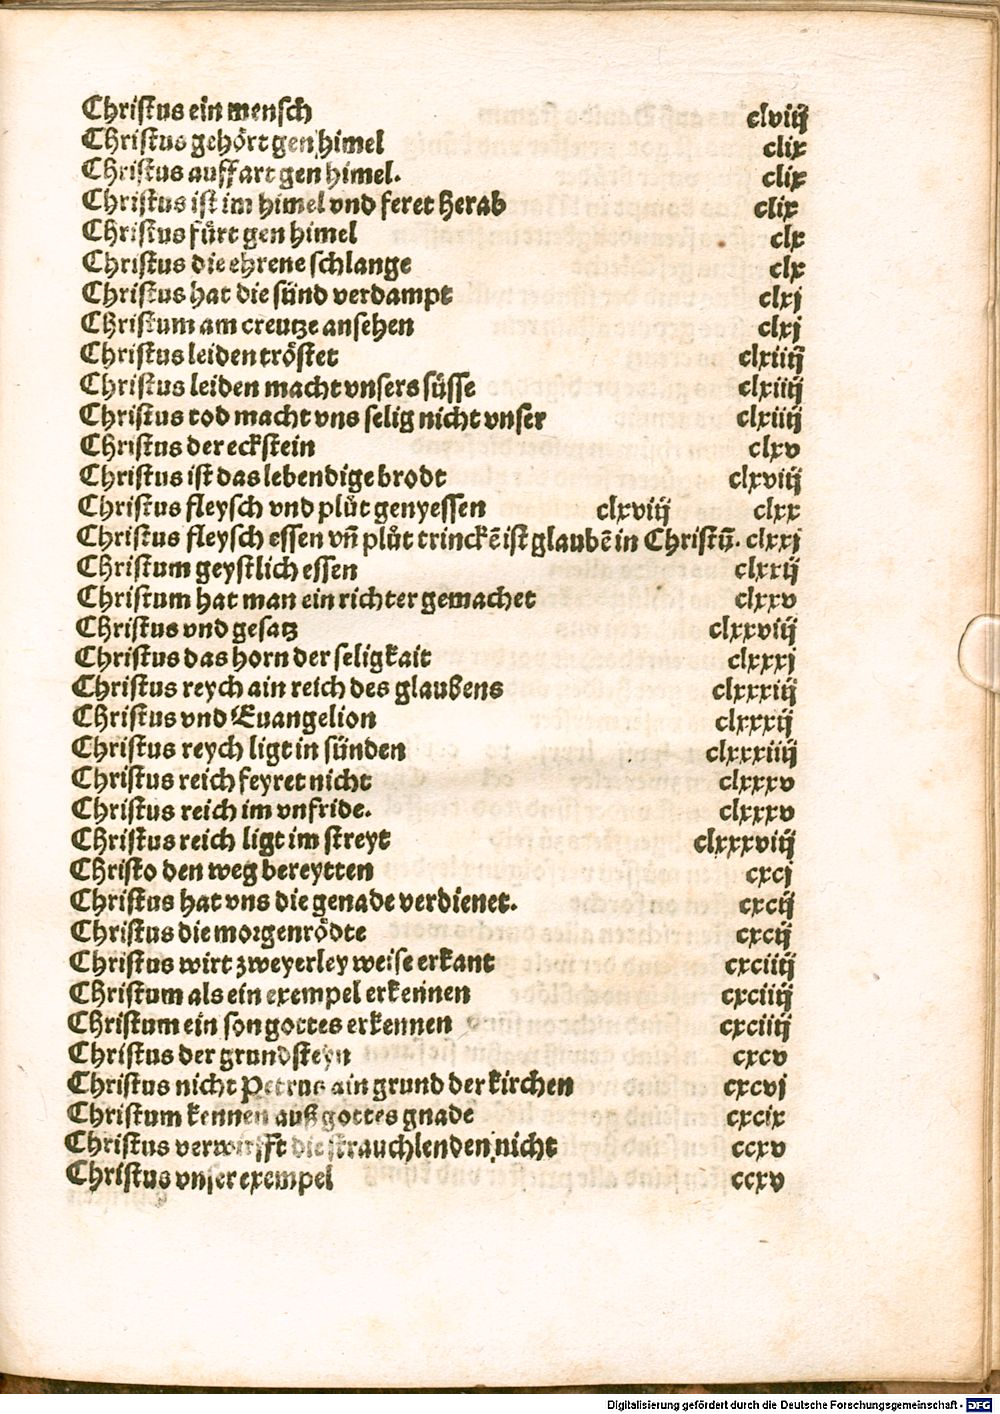 Christus ein mensch clviij
Christus gehört gen himel clix
Christus auffart gen himel. clix
Christus ist im himel vnd feret herab clix
Christus fürt gen himel clx
Christus die ehrene schlange clx
Christus hat die sünd verdampt clxj
Christum am creutze ansehen clxj
Christus leiden tröstet clxiiij
Christus leiden macht vnsers süsse clxiiij
Christus tod macht vns selig nicht vnser clxiiij
Christus der eckstein clxv
Christus ist das lebendige brodt clxviij
Christus fleysch vnd plůt genyessen clxviij clxx
Christus fleysch essen vñ plůt trinckē ist glaubē in Christū. clxxj
Christum geystlich essen clxxij
Christum hat man ein richter gemachet clxxv
Christus vnd gesatz clxxviij
Christus das horn der seligkait clxxxj
Christus reych ain reich des glaubens clxxxiij
Christus vnd Euangelion clxxxij
Christus reych ligt in sünden clxxxiiij
Christus reich feyret nicht clxxxv
Christus reich im vnfride. clxxxv
Christus reich ligt im streyt clxxxviij
Christo den weg bereytten cxcj
Christus hat vns die genade verdienet. cxcij
Christus die morgenrödte cxcij
Christus wirt zweyerley weise erkant cxciiij
Christum als ein exempel erkennen cxciiij
Christum ein son gottes erkennen cxciiij
Christus der grundsteyn cxcv
Christus nicht Petrus ain grund der kirchen cxcvj
Christum kennen auß gottes gnade cxcix
Christus verwirfft die strauchlenden nicht ccxv
Christus vnser exempel ccxv
Digitalisierung gefördert durch die Deutsche Forschungsgemeinschaft - DFG